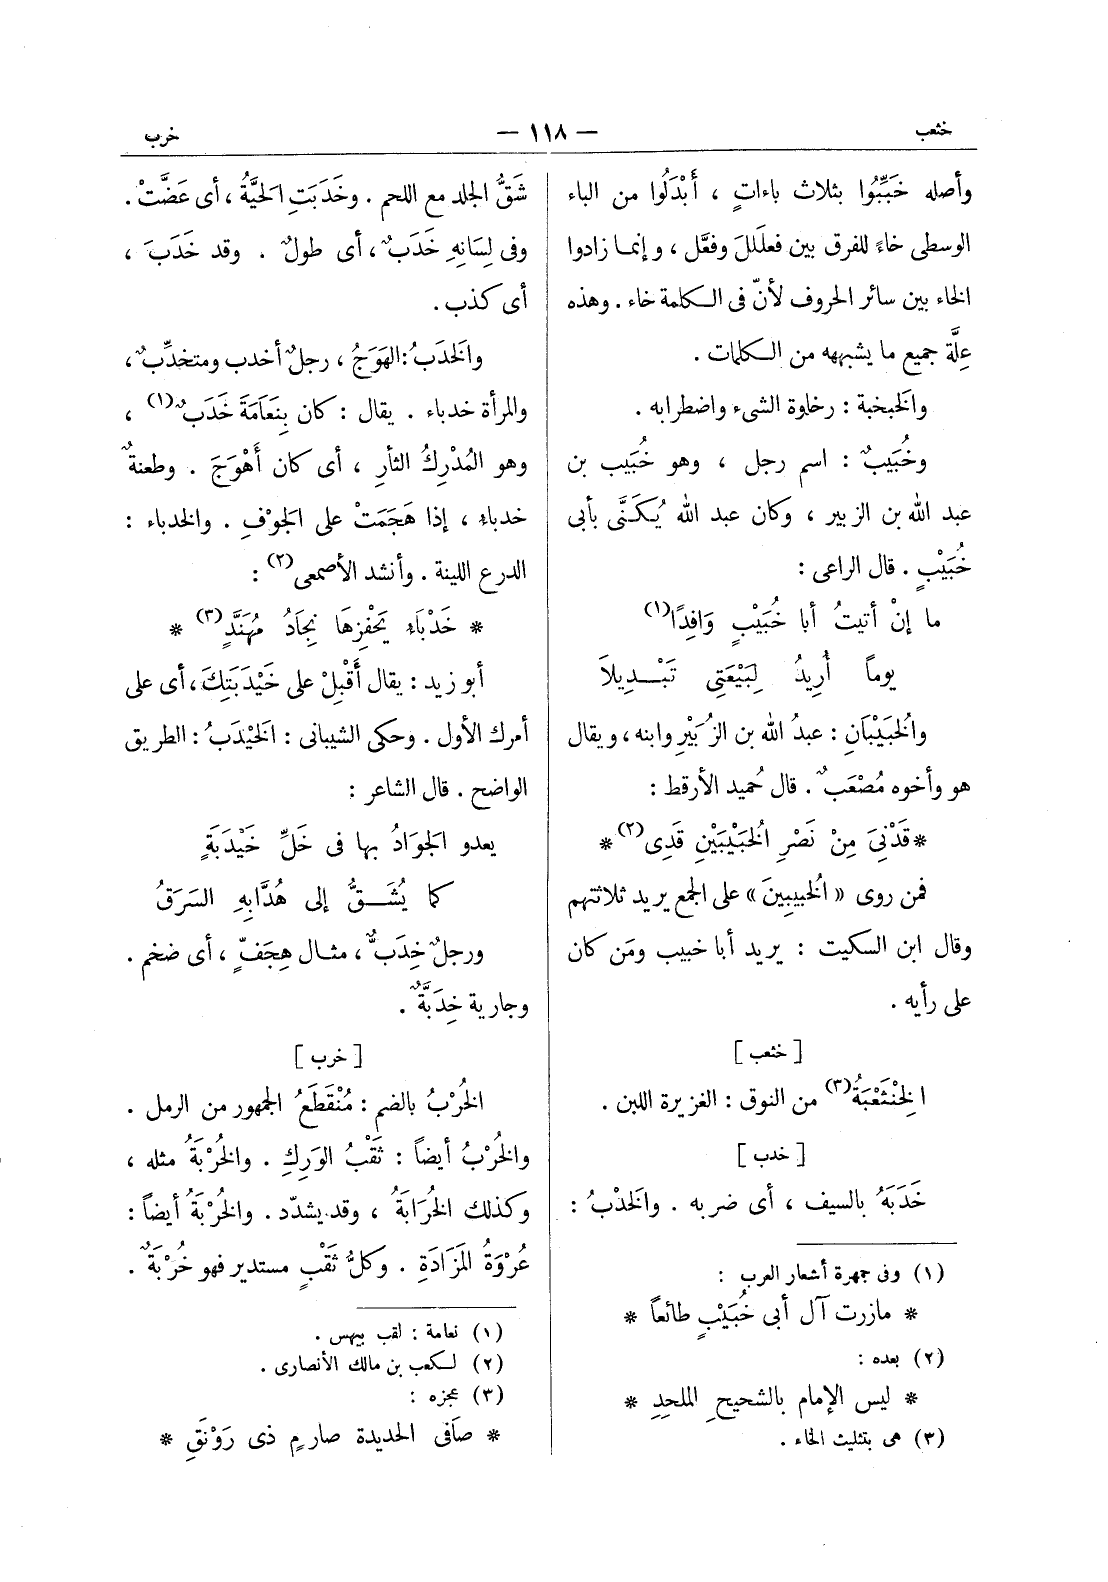 خثعب
— ١١٨ —
خرب
وأصله خَبَّبُوا بثلاث باءاتٍ ، أَبْدَلُوا من الباء
الوسطى خاءً للفرق بين فعلَلَ وفعَّل ، وإنما زادوا
الخاء بين سائر الحروف لأنّ فى الكلمة خاء . وهذه
عِلَّة جميع ما يشبهه من الكلمات .
والخبخبة : رخاوة الشىء واضطرابه .
وخُبَيبٌ : اسم رجل ، وهو خُبَيب بن
عبد الله بن الزبير ، وكان عبد الله يُكَنَّى بأبى
خُبَيْبٍ . قال الراعى :
ما إنْ أتيتُ أبا خُبَيْبٍ وَافِدًا(١)
يوماً أُرِيدُ لِبَيْعَتِى تَبْدِيلاَ
والخُبَيْبَانِ : عبدُ الله بن الزُبَيْرِ وابنه ، ويقال
هو وأخوه مُصْعَبٌ . قال حُميد الأرقط :
* قَدْنِىَ مِنْ نَصْرِ الخُبَيْبَيْنِ قَدِى(٢) *
فمن روى « الخُبيبِينَ » على الجمع يريد ثلاثتهم
وقال ابن السكيت : يريد أبا خبيب ومَن كان
على رأيه .
[ خثعب ]
الخِنْثَعْبَةُ(٣) من النوق : الغزيرة اللبن .
[ خدب ]
خَدَبَهُ بالسيف ، أى ضربه . والخَدْبُ :
(١) وفى جمهرة أشعار العرب :
* مازرت آل أبى خُبَيْبٍ طائعاً *
(٢) بعده :
* ليس الإمام بالشحيح الملحِدِ *
(٣) هى بتثليث الخاء .
شَقُّ الجلد مع اللحم . وخَدَبَتِ الحَيَّةُ ، أى عَضَّتْ .
وفى لِسَانِهِ خَدَبٌ ، أى طولٌ . وقد خَدَبَ ،
أى كذب .
والخَدَبُ : الهَوَجُ ، رجلٌ أخدب ومتخدِّبٌ ،
والمرأة خدباء . يقال : كان بِنَعَامَةَ خَدَبٌ(١) ،
وهو المُدْرِكُ الثأرِ ، أى كان أَهْوَجَ . وطعنةٌ
خدباء ، إذا هَجَمَتْ على الجَوْفِ . والخدباء :
الدرع اللينة . وأنشد الأصمعى(٢) :
* خَدْبَاء يَحْفِزهَا نِجَادُ مُهَنَّدٍ(٣) *
أبو زيد : يقال أَقْبِلْ على خَيْدَبَتِكَ ، أى على
أمرك الأول . وحكى الشيبانى : الخَيْدَبُ : الطريق
الواضح . قال الشاعر :
يعدو الجَوَادُ بها فى خَلِّ خَيْدَبَةٍ
كما يُشَقُّ إلى هُدَّابِهِ السَرَقُ
ورجلٌ خِدَبٌّ ، مثال هِجَفٍّ ، أى ضخم .
وجارية خِدَبَّةٌ .
[ خرب ]
الخُرْبُ بالضم : مُنْقَطَعُ الجمهور من الرمل .
والخُرْبُ أيضاً : ثَقْبُ الوَرِكِ . والخُرْبَةُ مثله ،
وكذلك الخُرَابَةُ ، وقد يشدّد . والخُرْبَةُ أيضاً :
عُرْوَةُ المَزَادَةِ . وكلُّ ثَقْبٍ مستدير فهو خُرْبَةٌ .
(١) نعامة : لقب بيهس .
(٢) لكعب بن مالك الأنصارى .
(٣) عجزه :
* صَافى الحديدة صارمٍ ذى رَوْنَقِ *